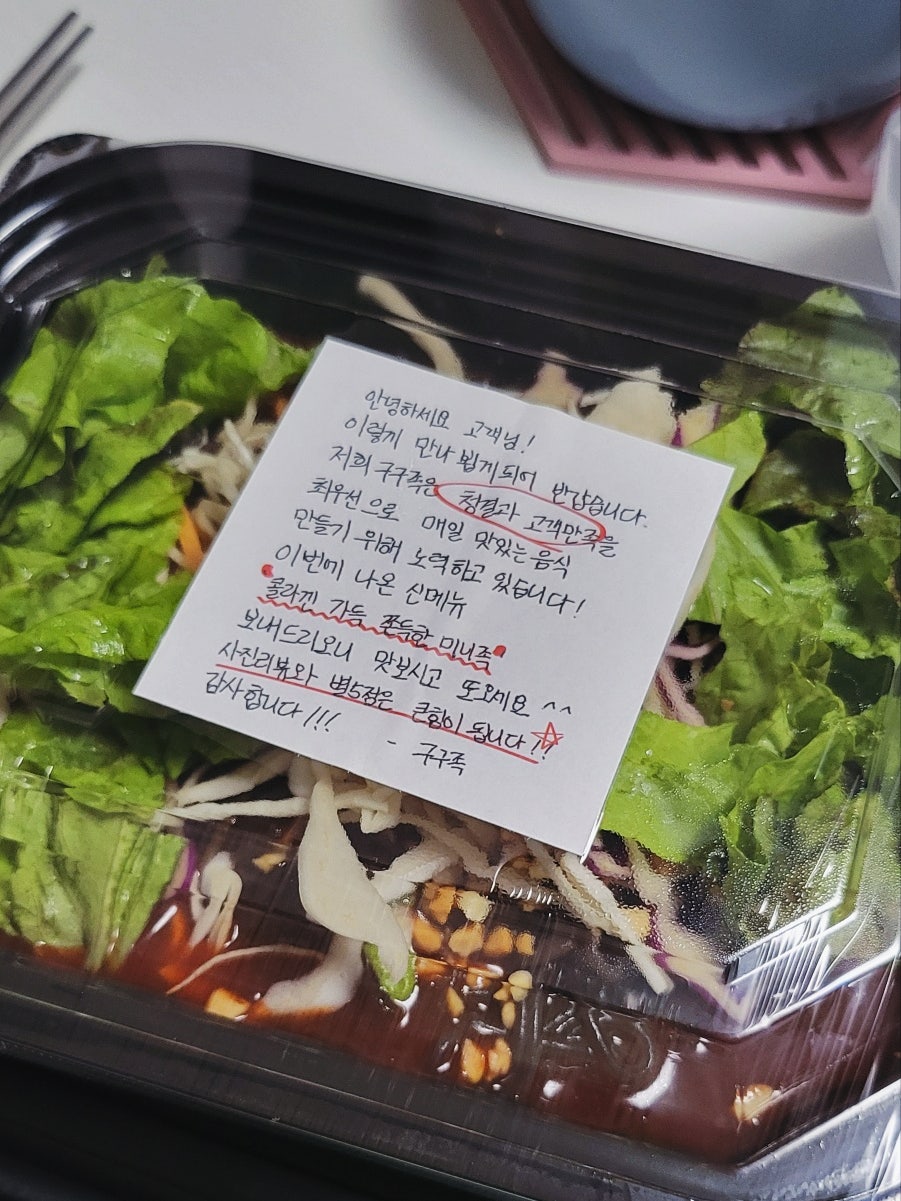 안녕하세요 고객님!
이렇게 만나 뵙게되어 반갑습니다.
저희 구구족은 청결과 고객만족을
최우선으로 매일 맛있는 음식
만들기 위해 노력하고 있습니다!
이번에 나온 신메뉴
콜라겐 가득 쫀득한 미니족
보내드리오니 맛보시고 또오세요 ^^
사진리뷰와 별5점은 큰힘이 됩니다!!
감사합니다!!!
- 구구족